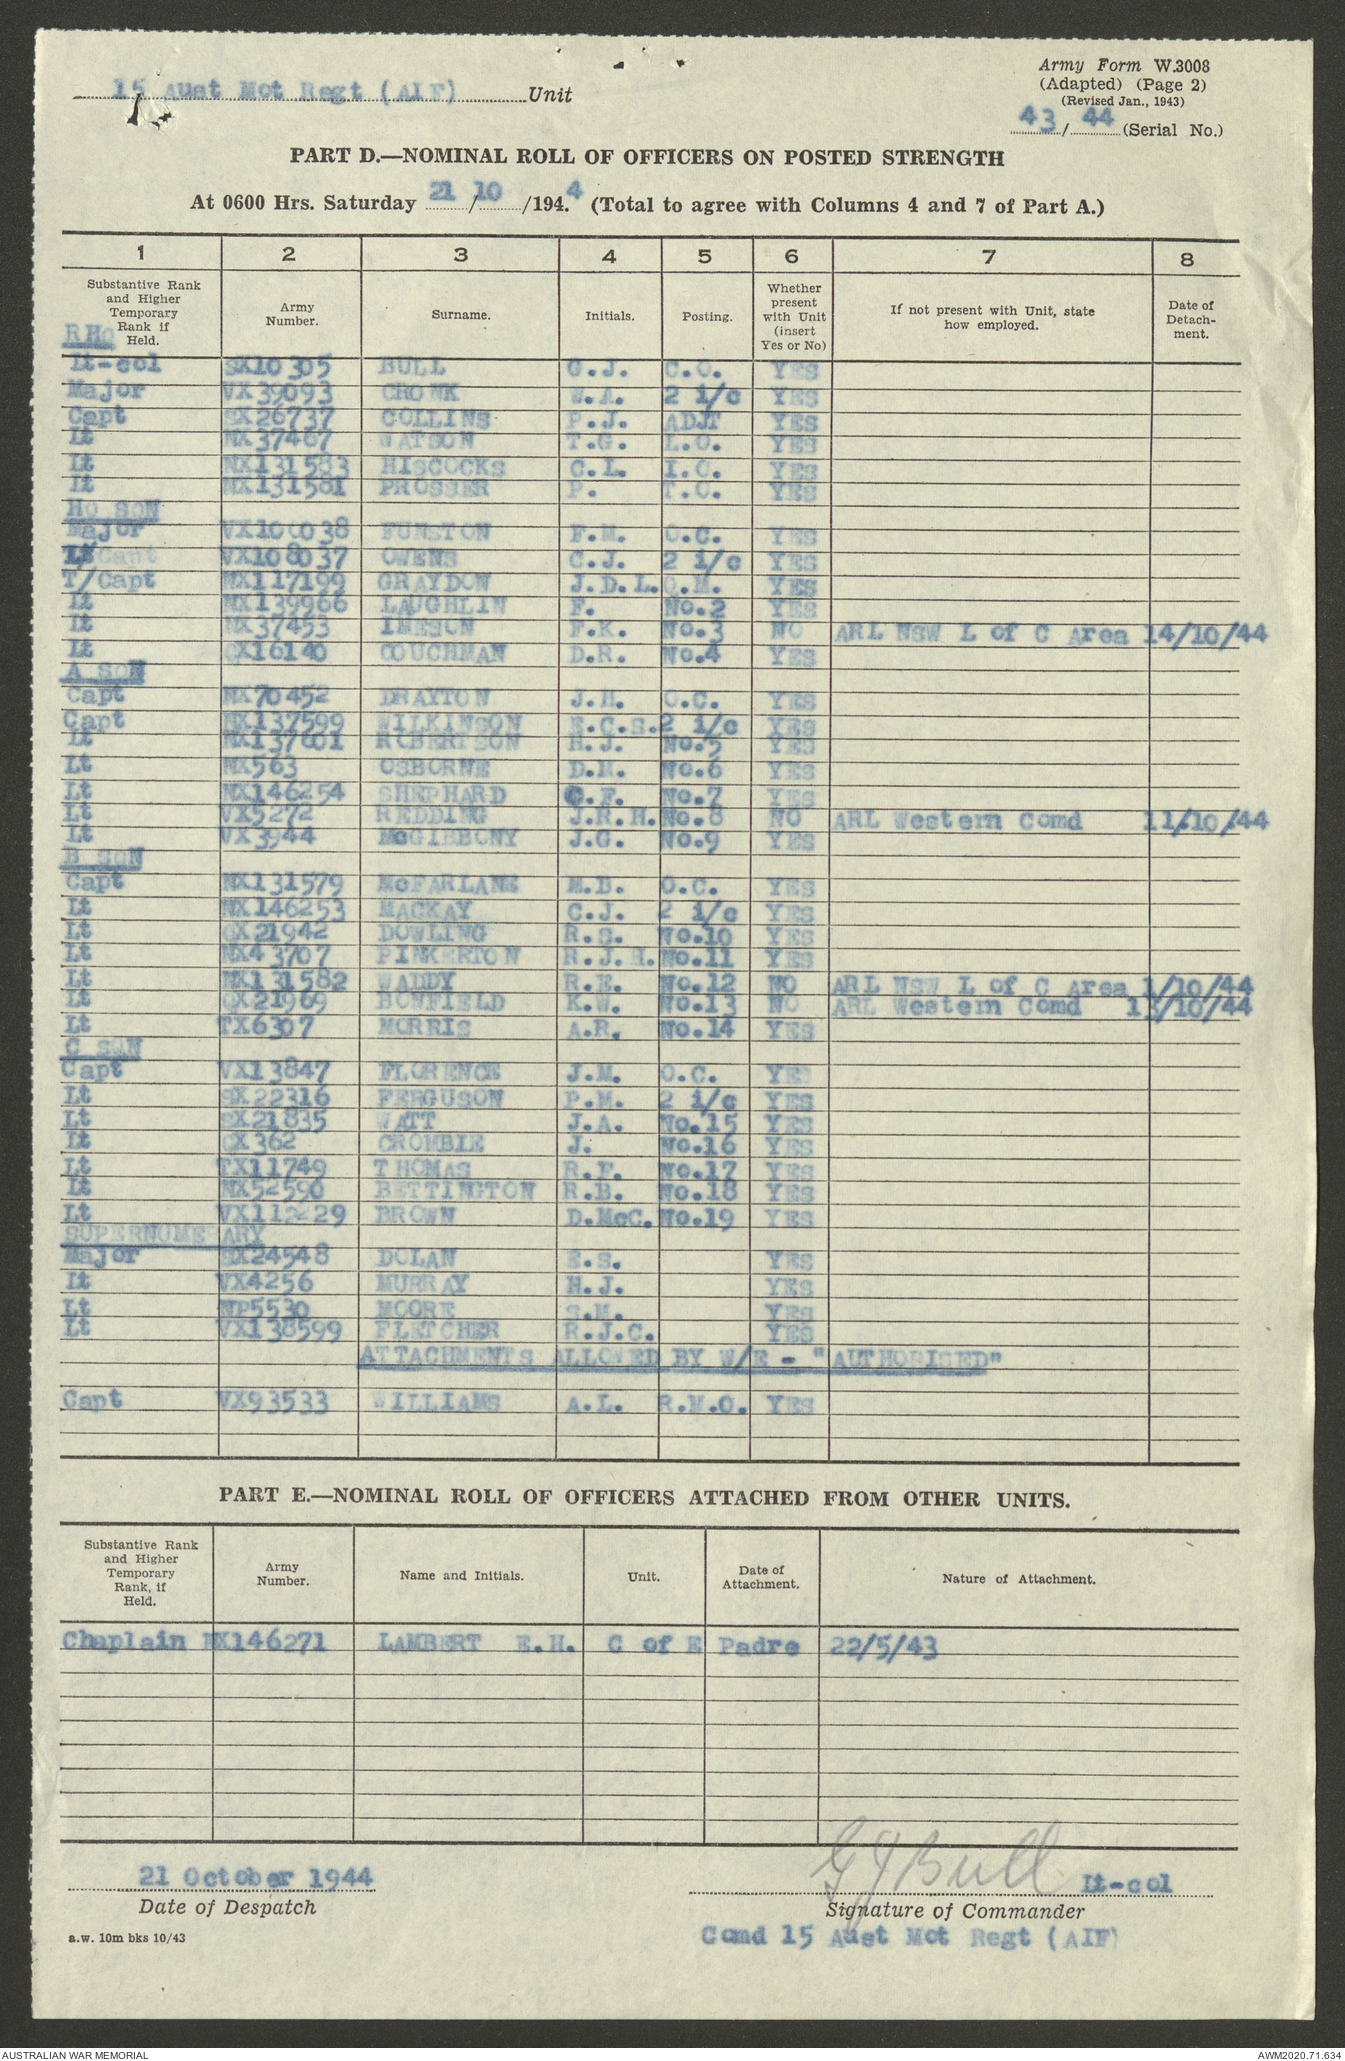 15 Aust Mot Regt (AIF) Unit
Army Form W.3008
(Adapted) (Page 2)
(Revised Jan., 1943)
43 / 44 (Serial No.)
PART D.—NOMINAL ROLL OF OFFICERS ON POSTED STRENGTH
At 0600 Hrs. Saturday 21 / 10 /194.4 (Total to agree with Columns 4 and 7 of Part A.)
1 2 3 4 5 6 7 8
Substantive Rank and Higher Temporary Rank if Held. Army Number. Surname. Initials. Posting. Whether present with Unit (insert Yes or No) If not present with Unit, state how employed. Date of Detach-ment.
RHQ
Lt-col SX10305 BULL G.J. C.O. YES
Major VX39093 CRONK W.A. 2 i/c YES
Capt SX26737 COLLINS P.J. ADJT YES
Lt NX37467 WATSON T.G. L.O. YES
Lt NX131583 HISCOCKS C.L. I.O. YES
Lt NX131581 PROSSER P. T.O. YES
HQ SQN
Major VX100038 FUNSTON F.M. O.C. YES
Lt/Capt VX108037 OWENS C.J. 2 i/c YES
T/Capt NX117199 GRAYDON J.D.L. Q.M. YES
Lt NX139966 LAUGHLIN F. No.2 YES
Lt NX37453 IMESON F.K. No.3 NO ARL NSW L of C Area 14/10/44
Lt QX16140 COUCHMAN D.R. No.4 YES
A SQN
Capt NX70452 DRAYTON J.H. O.C. YES
Capt NX137599 WILKINSON E.C.S. 2 i/c YES
Lt NX137601 ROBERTSON H.J. No.5 YES
Lt NX563 OSBORNE D.M. No.6 YES
Lt NX146254 SHEPHARD C.F. No.7 YES
Lt VX5272 REDDING J.R.H. No.8 NO ARL Western Comd 11/10/44
Lt VX3944 McGIBBONY J.G. No.9 YES
B SQN
Capt NX131579 McFARLANE M.B. O.C. YES
Lt NX146253 MACKAY C.J. 2 i/c YES
Lt QX21942 DOWLING R.S. No.10 YES
Lt NX43707 PINKERTON R.J.H. No.11 YES
Lt NX131582 WADDY R.E. No.12 NO ARL NSW L of C Area 1/10/44
Lt QX21969 BONFIELD K.W. No.13 NO ARL Western Comd 13/10/44
Lt TX6307 MORRIS A.R. No.14 YES
C SQN
Capt VX13847 FLORENCE J.M. O.C. YES
Lt SX22316 FERGUSON P.M. 2 i/c YES
Lt SX21835 WATT J.A. No.15 YES
Lt QX362 CROMBIE J. No.16 YES
Lt TX11749 THOMAS R.F. No.17 YES
Lt NX52590 BETTINGTON R.B. No.18 YES
Lt VX112229 BROWN D.McC. No.19 YES
SUPERNUMERARY
Major SX24548 DOLAN E.S. YES
Lt VX4256 MURRAY H.J. YES
Lt NP5530 MOORE S.M. YES
Lt VX138599 FLETCHER R.J.C. YES
ATTACHMENTS ALLOWED BY W/E - "AUTHORISED"
Capt VX93533 WILLIAMS A.L. R.M.O. YES
PART E.—NOMINAL ROLL OF OFFICERS ATTACHED FROM OTHER UNITS.
Substantive Rank and Higher Temporary Rank, if Held. Army Number. Name and Initials. Unit. Date of Attachment. Nature of Attachment.
Chaplain NX146271 LAMBERT E.H. C of E Padre 22/5/43
21 October 1944 GJBull Lt-col
Date of Despatch Signature of Commander
a.w. 10m bks 10/43 Comd 15 Aust Mot Regt (AIF)
AUSTRALIAN WAR MEMORIAL AWM2020.71.634